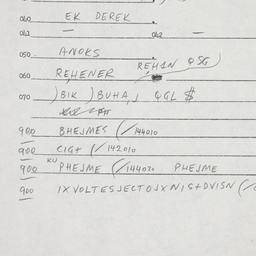 040 EK DEREK
041 — 042 —
050 ANOKS
060 REHENER REHAN QSG
070 )BIK )BUHA, QGL $
900 BHEJMES (/144010
900 CIG+ (/142010
900 KU PHEJME (/144020 PHEJME
900 IXVOLTESJECTOJXNIG+DVISN (/